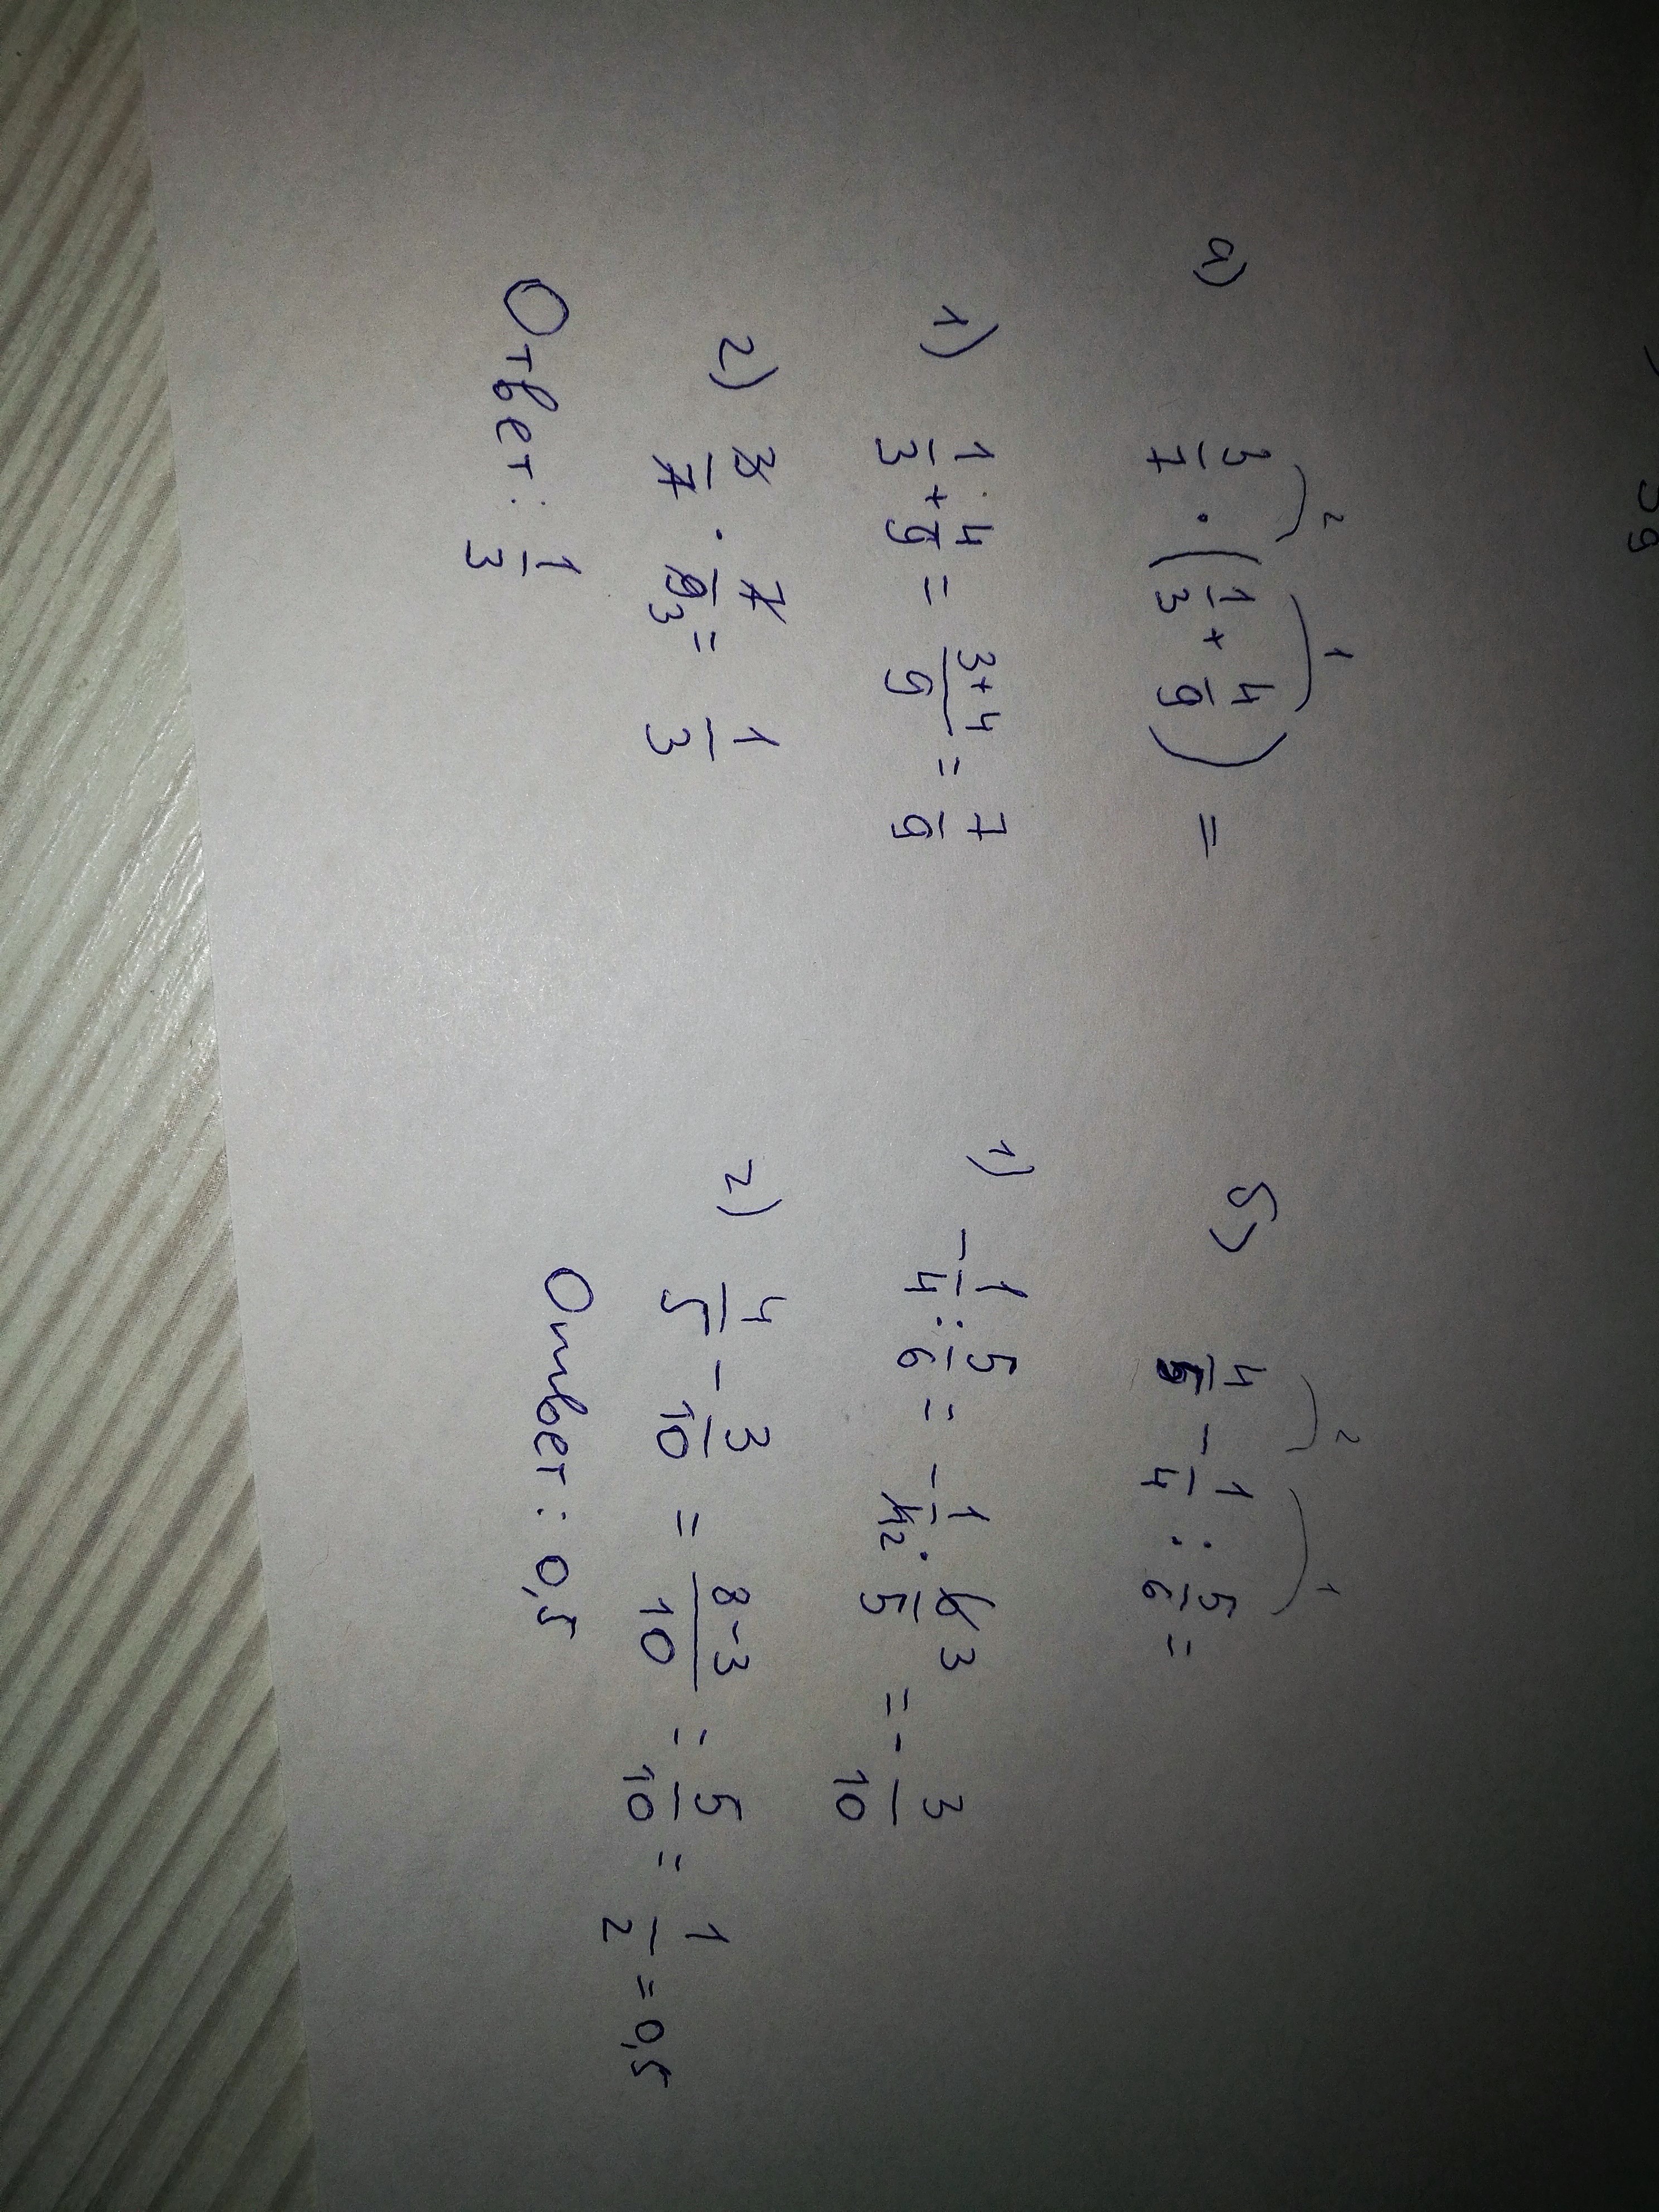 а) 3/7 · (1/3 + 4/9) =
1) 1/3 + 4/9 = 3+4/9 = 7/9
2) 3/7 · 7/9 3 = 1/3
Ответ: 1/3
б) 4/5 - 1/4 : 5/6 =
1) -1/4 : 5/6 = -1/4 2 · 6 3/5 = -3/10
2) 4/5 - 3/10 = 8-3/10 = 5/10 = 1/2 = 0,5
Ответ: 0,5